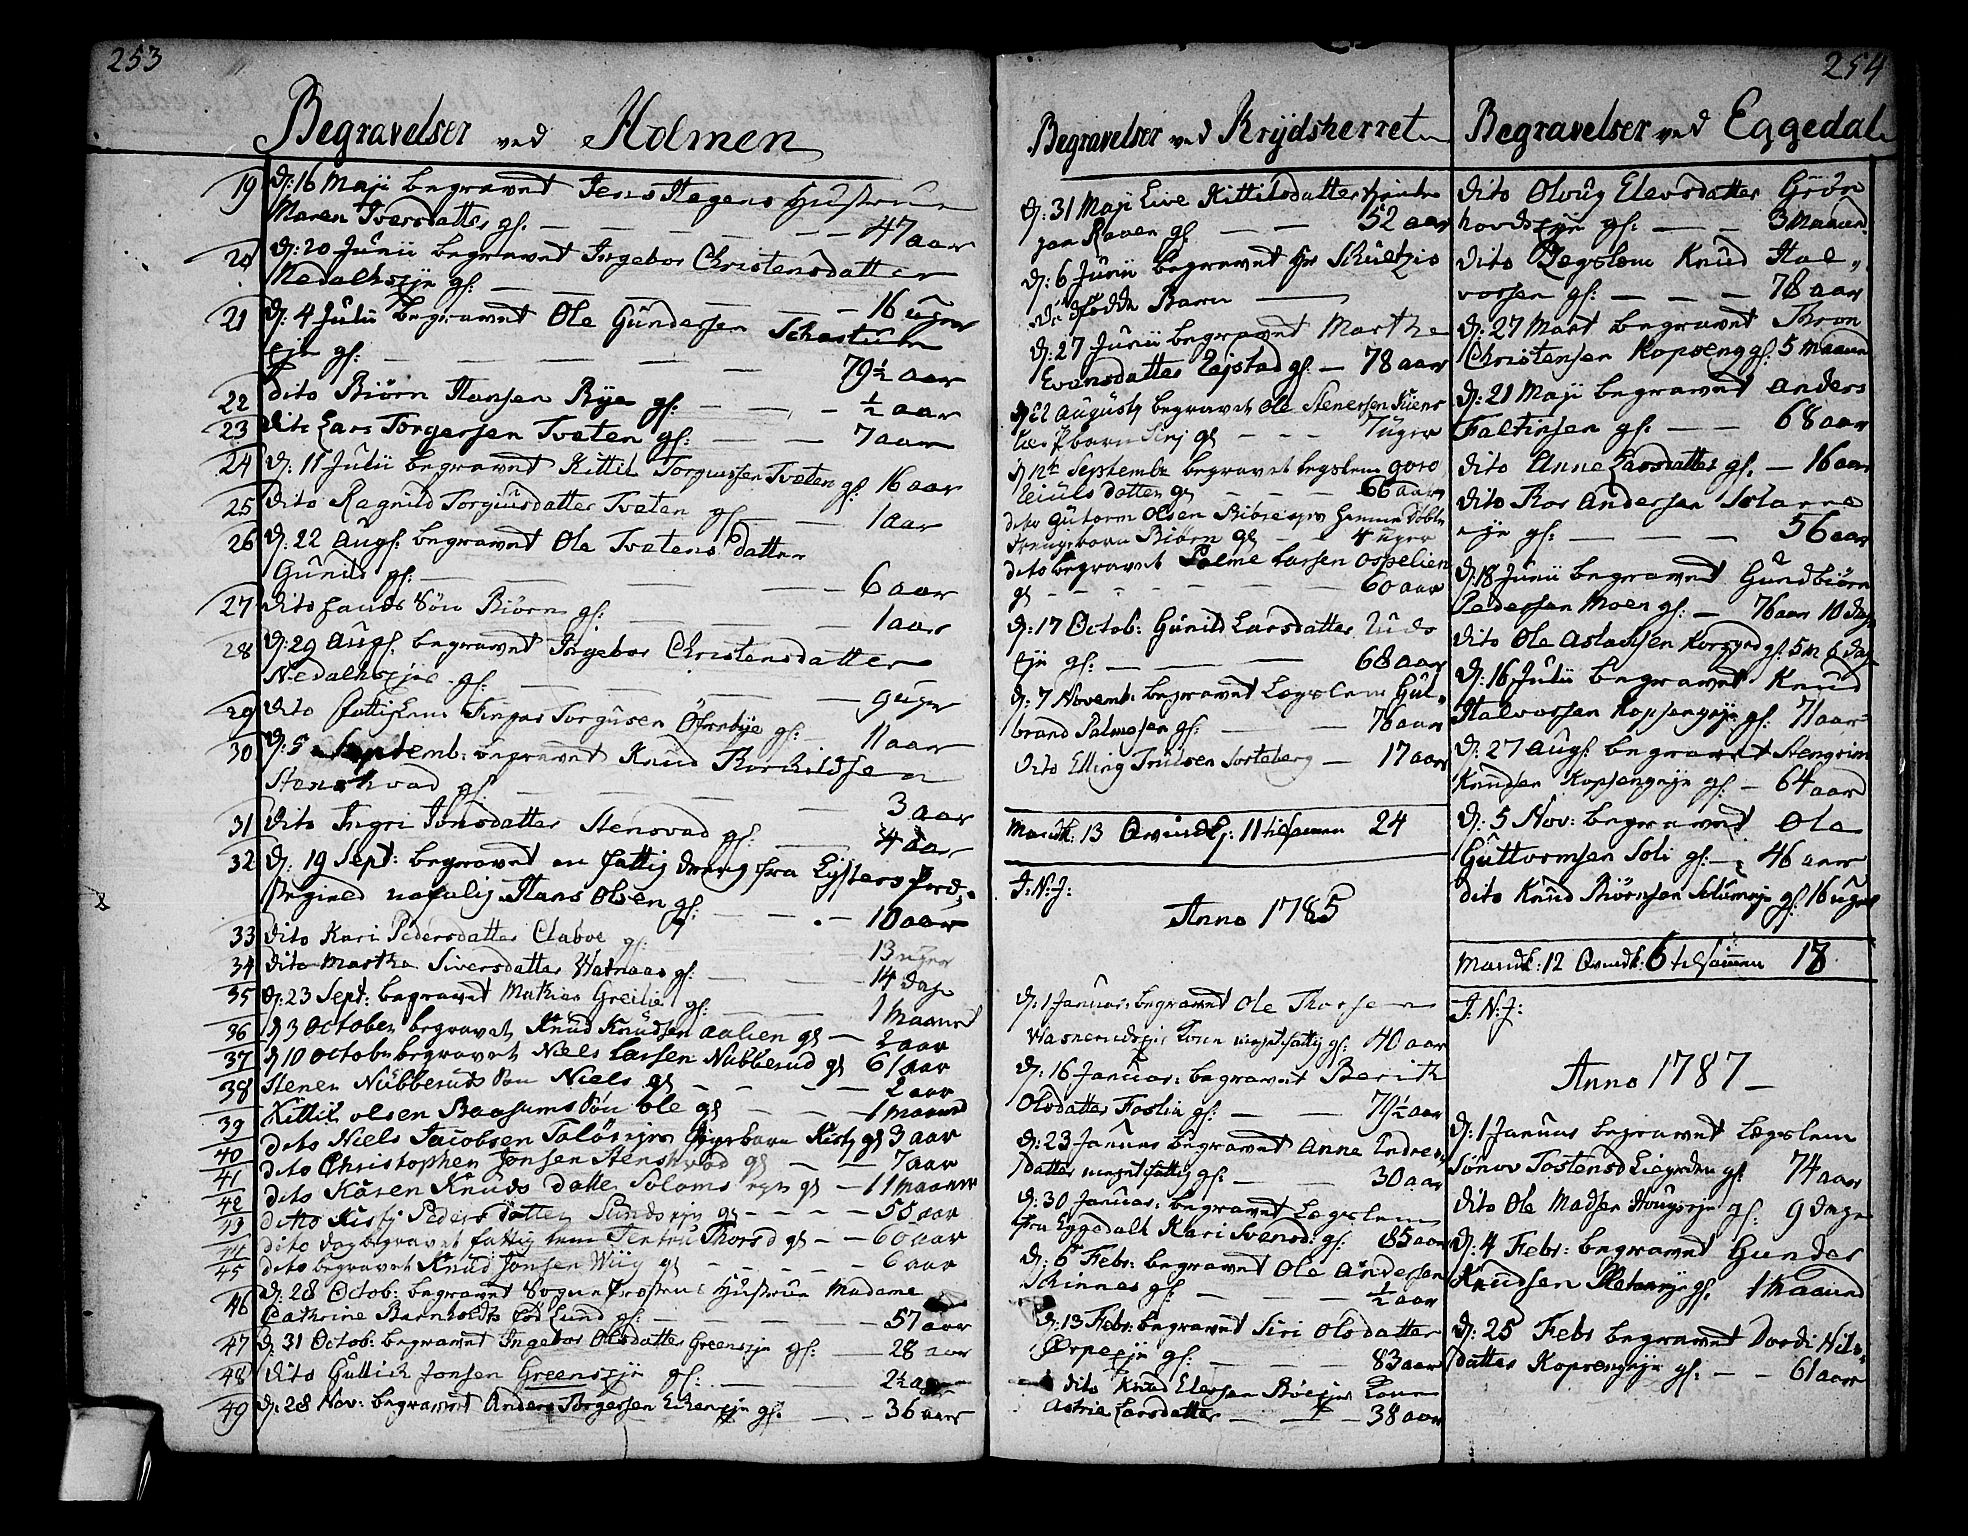 253
Begravelser ved Holmen
19 D: 16 Maji begravet Jens Hagens Hustrue
Maren Iversdatter gl. — — — 47 aar
20 D: 20 Junii begravet Ingebor Christensdatter
Nedalhseje gl: — — 16 uger
21 D: 4 Julii begravet Ole Gundersen
eje gl: — — — 79½ aar
22 Dito Biørn Hansen Rye gl: — — ½ aar
23 Dito Lars Torgersen Tveten gl: — — 7 aar
24 D: 11 Julii begravet Kittil Torgiussen Tveten gl: 16 aar
25 Dito Ragnild Torgiusdatter Tveten gl — — 1 aar
26 D: 22 Augs. begravet Ole Tvetens datter
Gunild gl: — — — 6 aar
27 Dito Søn Biørn gl: — — 1 aar
28 D: 29 Augs. begravet Ingebor Christensdatter
Nedalhsejie gl: — — — 9 uger
29 Dito fattiglem Torgusen gl: — 11 aar
30 D: 5 Septemb: begravet Knud Torkildsen
Stenshvad gl: — — — 3 aar
31 Dito Ingri Jonsdatter Stensvad gl: — — 4 aar
32 D: 19 Sept: begravet en fattig dreng fra Lysters
nafnlig Hans Olsen gl: — — 10 aar
33 Dito Kari Pedersdatter gl: — 13 uger
34 Dito Martha Siversdatter Watnaas gl: — 14 dage
35 D: 23 Sept: begravet Mathias gl: — 1 Maaned
36 D 3 October begravet Knud Knudsen Aalien gl — 2 aar
37 D 10 Octobr begravet Niels Larsen Nubberud gl 61 aar
38 Stenen Nubberuds Søn Niels gl — — 2 aar
39 Kittil Olsen Baasums Søn Ole gl — — 1 Maaned
40 dito Niels Jacobsen Kisty gl 3 aar
41 dito Christopher Jonsen Stenshvad gl — — 7 aar
42 dito Karen Knuds datter Soloms eye gl — 11 maaner
43 ditto Kisti Peders datter Sundseye gl — — 55 aar
44 dito dag begravet fattig lem gl — — 60 aar
45 dito begravet Knud Jonsen Wiig gl — — 6 aar
46 D: 28 Octob: begravet Sogne Prestens Hustrue Madame
Cathrine Lund gl: — — 57 aar
47 D: 31 Octob: begravet Ingebor Olsdatter Greenseje gl: — 28 aar
48 Dito Guttick Jonsen Greenseje gl: — — 2½ aar
49 D: 28 Nov: begravet Anders Torgersen gl: — — 36 aar
Begravelser ved Krydsherret
D: 31 Maji Live Kittilsdatter
gl — — 52 aar
D: 6 Junii begravet Hr Schultzis
dødfødde Barn —
D: 27 Junii begravet Marthe
Evensdatter gl. — 78 aar
D 22 Augusty begravet Ole Stenersen
gl — — — 7 uger
D 12te September begravet legslem Goro
datter gl — — — 66 aar
dito Gutorm Olsen
Biørn gl — — 4 uger
dito begravet Palme Larsen Ospelien
gl — — — 60 aar
D: 17 Octob: Gunild Larsdatter
eje gl: — — — 68 aar
D: 7 Novemb: begravet Lægslem Gul-
brand Palmesen gl: — — 76 aar
Dito Elling Trulsen Sorteberg — 17 aar
Mandk: 13 Qvindk: 11 tilsamen 24
I: N: J:
Anno 1785
D: 1 Januar: begravet Ole Thorsen
gl: 40 aar
D: 16 Januar: begravet Berith
Olsdatter Foslia gl: — — 79½ aar
D: 23 Januar begravet Anne Endres-
datter meget fattig gl: — — 30 aar
D: 30 Januar: begravet Lægslem
fra Eggedalt Kari Svensd: gl: 85 aar
D: 6 Febr: begravet Ole Andersen
Skinnes gl: — — ½ aar
D: 13 Febr: begravet Siri Olsdatter
gl: — — — 83 aar
Dito Knud Elersen Kone
Astrie Larsdatter — — — 38 aar
254
Begravelser ved Eggedal
Dito Olvug Elevsdatter Grøn
hovdseje gl: — — 3 Maaned
Dito Legslem Knud Hal-
vorsen gl: — — — 78 aar
D: 27 Mart begravet Thron
Christensen Kopseng gl: 5 Maaned
D: 21 Maji begravet Anders
Faltinsen gl: — — 68 aar
Dito Anne Larsdatter gl. — 16 aar
Dito Thor Andersen
eje gl: — — — 56 aar
D: 18 Junii begravet Gundbiørn
Pedersen Moen gl: — 76 aar 10 dage
Dito Ole Aslachsen gl: 5 M 6 dage
D: 16 Julii begravet Knud
Halvorsen Kopsengeje gl: 71 aar
D: 27 Augs. begravet Stengrim
Knudsen Kopsengeje gl: — 64 aar
D: 5 Nov: begravet Ole
Guttormsen Soli gl: — 46 aar
Dito Knud Biørnsen gl: 16 uger
Mandk: 12 Qvindk: 6 tilsamen 18
I: N: J:
Anno 1787
D: 1 Januar begravet Lægslem
Tostensd gl: 74 aar
Dito Ole Madsen gl: 9 dage
D: 4 Febr: begravet Gunder
Knudsen gl. 1 Maaned
D: 25 Febr begravet Dordi Nils-
datter Kopsengeje gl: — — 61 aar